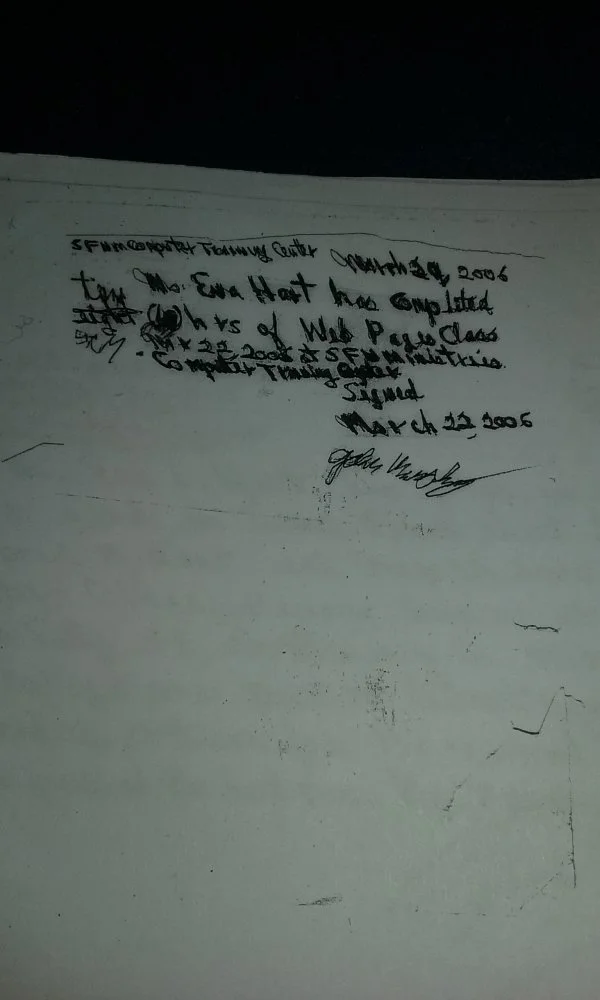 SFNM Computer Training Center March 29, 2006
Ms. Eva Hart has Completed
hrs of Web Pages Class
22, 2006 SFNMinistries.
Computer Training Center
Signed
March 22, 2006